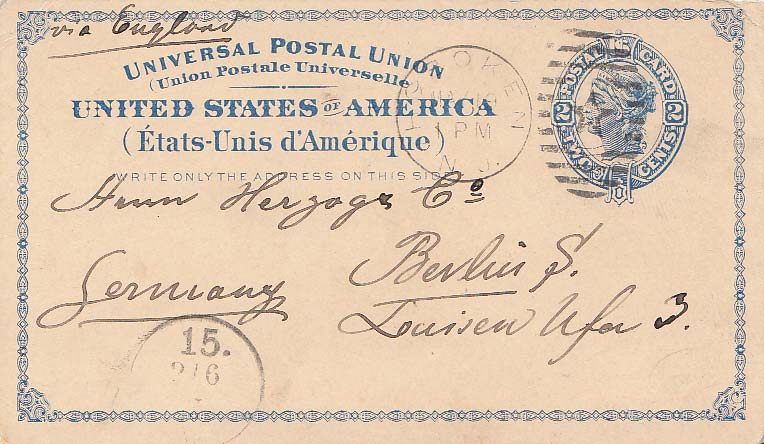 via England
UNIVERSAL POSTAL UNION
(Union Postale Universelle)
UNITED STATES OF AMERICA
(États-Unis d'Amérique)
WRITE ONLY THE ADDRESS ON THIS SIDE
POSTAL CARD
2 2
TWO CENTS
HOBOKEN
1 PM
N. J.
Herrn Herzog & Co
Berlin S.
Germany
Louisen Ufer 3.
15.